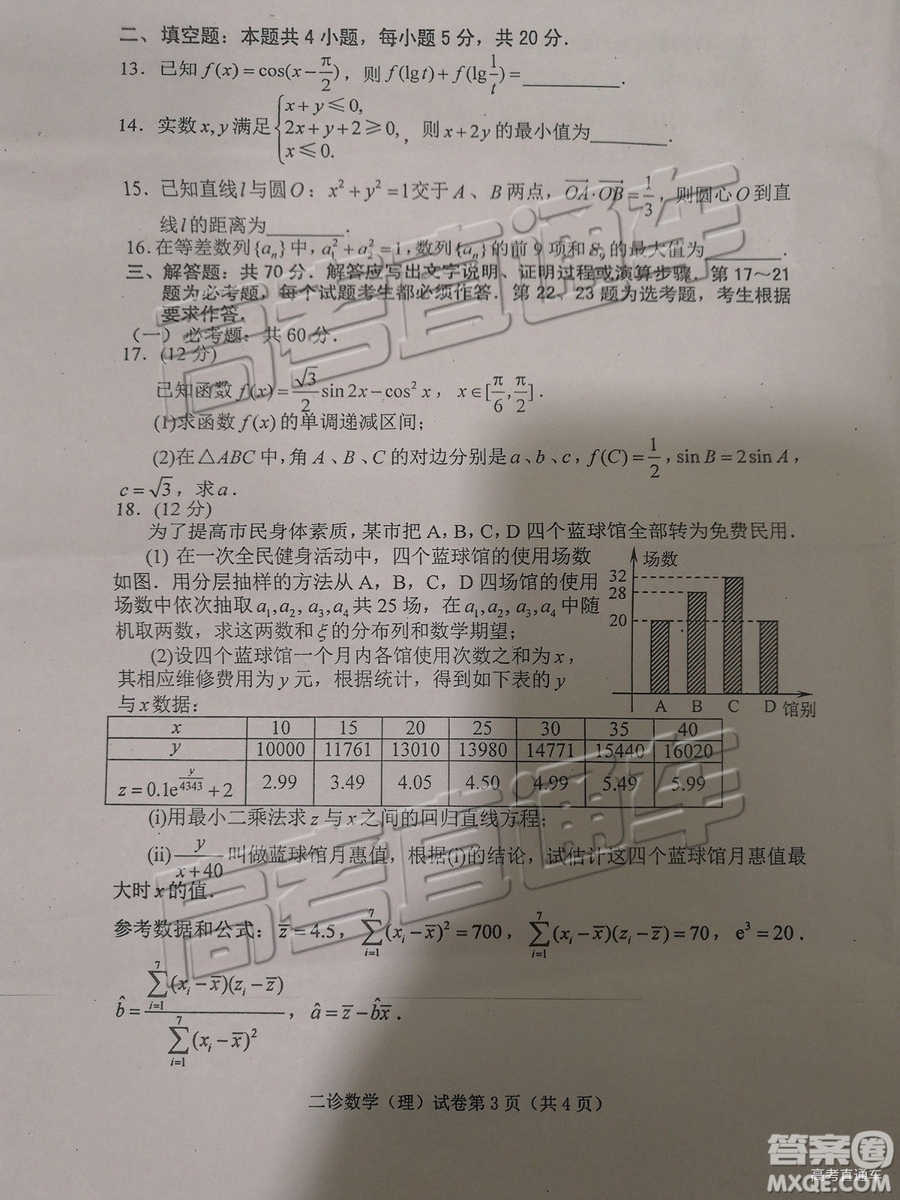 二、填空题：本题共4小题，每小题5分，共20分．
13．已知 f(x)=cos(x−π/2)，则 f(lgt)+f(lg1/t)=________．
14．实数x,y满足{x+y≤0, 2x+y+2≥0, x≤0. ，则x+2y的最小值为________．
15．已知直线l与圆O：x²+y²=1交于A、B两点，OA·OB=1/3，则圆心O到直
线l的距离为________．
16.在等差数列{aₙ}中，a₁²+a₂²=1，数列{aₙ}的前9项和S₉的最大值为________．
三、解答题：共70分．解答应写出文字说明、证明过程或演算步骤．第17～21
题为必考题，每个试题考生都必须作答．第22、23题为选考题，考生根据
要求作答．
（一）必考题：共60分．
17．(12分)
已知函数 f(x)=√3/2 sin2x−cos²x，x∈[π/6,π/2]．
(1)求函数 f(x)的单调递减区间；
(2)在△ABC中，角A、B、C的对边分别是a、b、c，f(C)=1/2，sinB=2sinA，
c=√3，求a．
18．(12分)
为了提高市民身体素质，某市把A，B，C，D四个蓝球馆全部转为免费民用．
(1) 在一次全民健身活动中，四个蓝球馆的使用场数
如图．用分层抽样的方法从A，B，C，D四场馆的使用
场数中依次抽取a₁,a₂,a₃,a₄共25场，在a₁,a₂,a₃,a₄中随
机取两数，求这两数和ξ的分布列和数学期望；
(2)设四个蓝球馆一个月内各馆使用次数之和为x，
其相应维修费用为y元，根据统计，得到如下表的y
与x数据：
场数
32
28
20
A B C D 馆别
x 10 15 20 25 30 35 40
y 10000 11761 13010 13980 14771 15440 16020
z=0.1e^(y/4343)+2 2.99 3.49 4.05 4.50 4.99 5.49 5.99
(i)用最小二乘法求z与x之间的回归直线方程；
(ii) y/(x+40) 叫做蓝球馆月惠值，根据(i)的结论，试估计这四个蓝球馆月惠值最
大时x的值．
参考数据和公式：z̄=4.5，∑_{i=1}^{7}(xᵢ−x̄)²=700，∑_{i=1}^{7}(xᵢ−x̄)(zᵢ−z̄)=70，e³=20．
b̂=∑_{i=1}^{7}(xᵢ−x̄)(zᵢ−z̄)/∑_{i=1}^{7}(xᵢ−x̄)²，â=z̄−b̂x̄．
二诊数学（理）试卷第3页（共4页）
高考直通车
高考直通车
答案圈
高考直通车
MXQE.COM